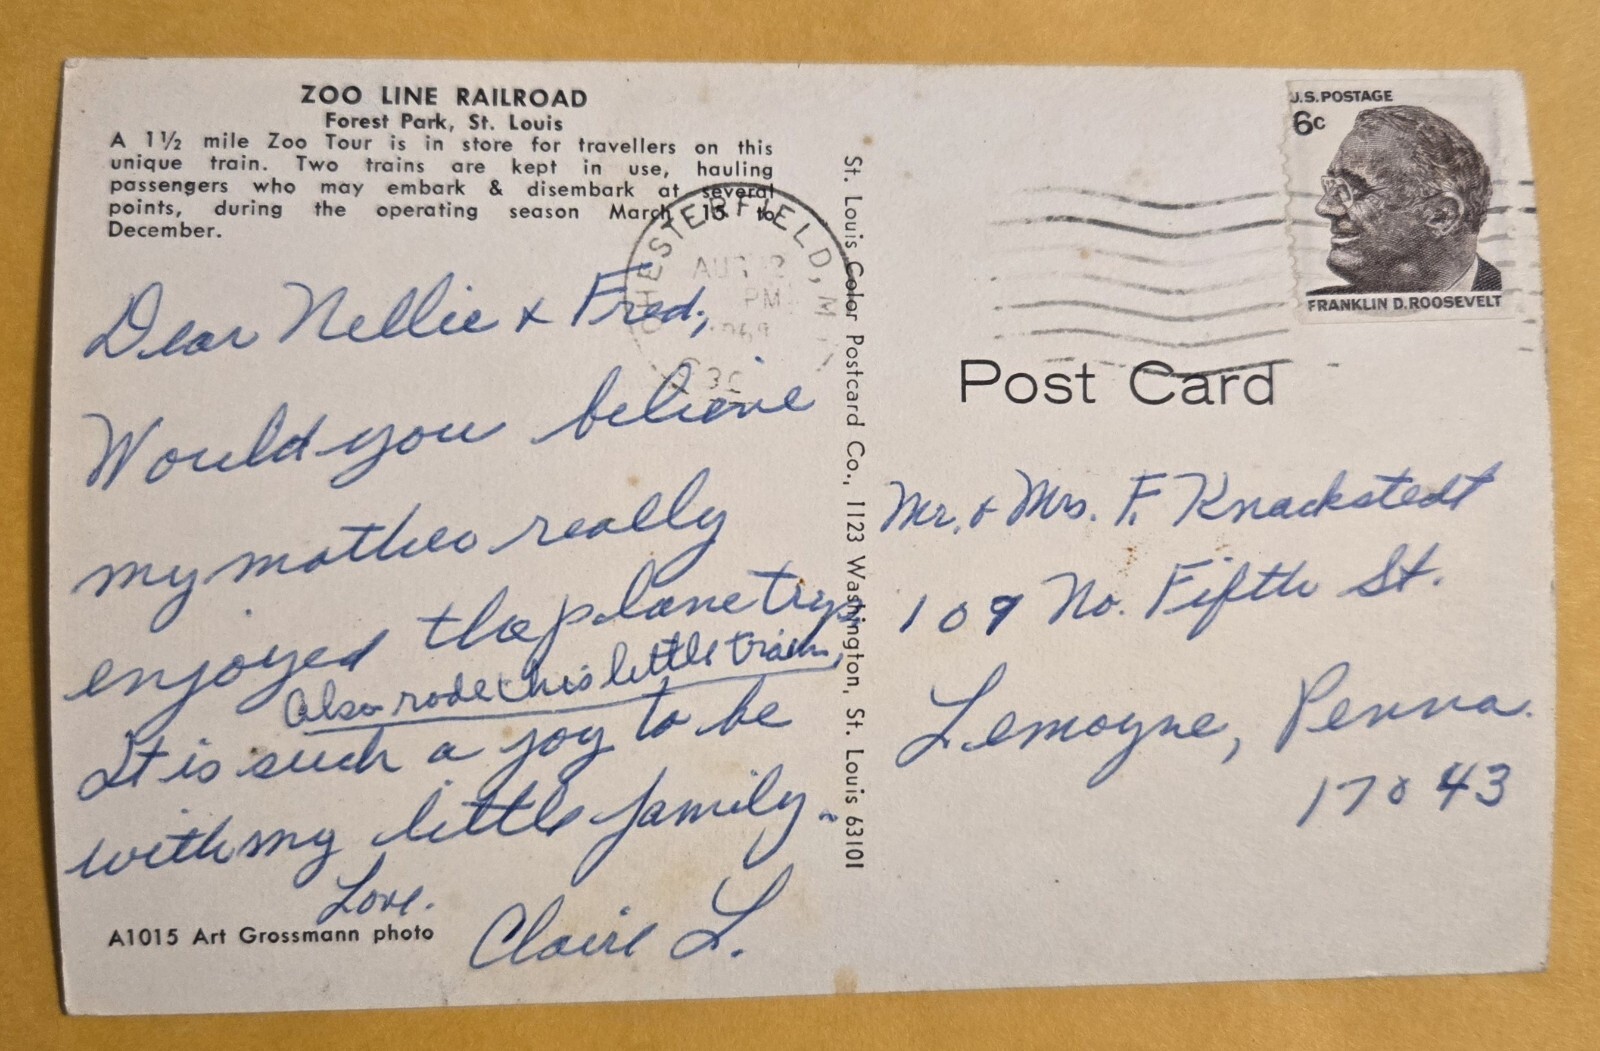 ZOO LINE RAILROAD
Forest Park, St. Louis
A 1½ mile Zoo Tour is in store for travellers on this
unique train. Two trains are kept in use, hauling
passengers who may embark & disembark at several
points, during the operating season March 15 to
December.
Dear Nellie & Fred,
Would you believe
my mother really
enjoyed the plane trip
Also rode this little train,
It is such a joy to be
with my little family.
Love.
Claire L.
A1015 Art Grossmann photo
St. Louis Color Postcard Co., 1123 Washington, St. Louis 63101
CHESTERFIELD, M
PM
U.S. POSTAGE
6c
FRANKLIN D. ROOSEVELT
Post Card
Mr. & Mrs. F. Knackstedt
109 No. Fifth St.
Lemoyne, Penna.
17043